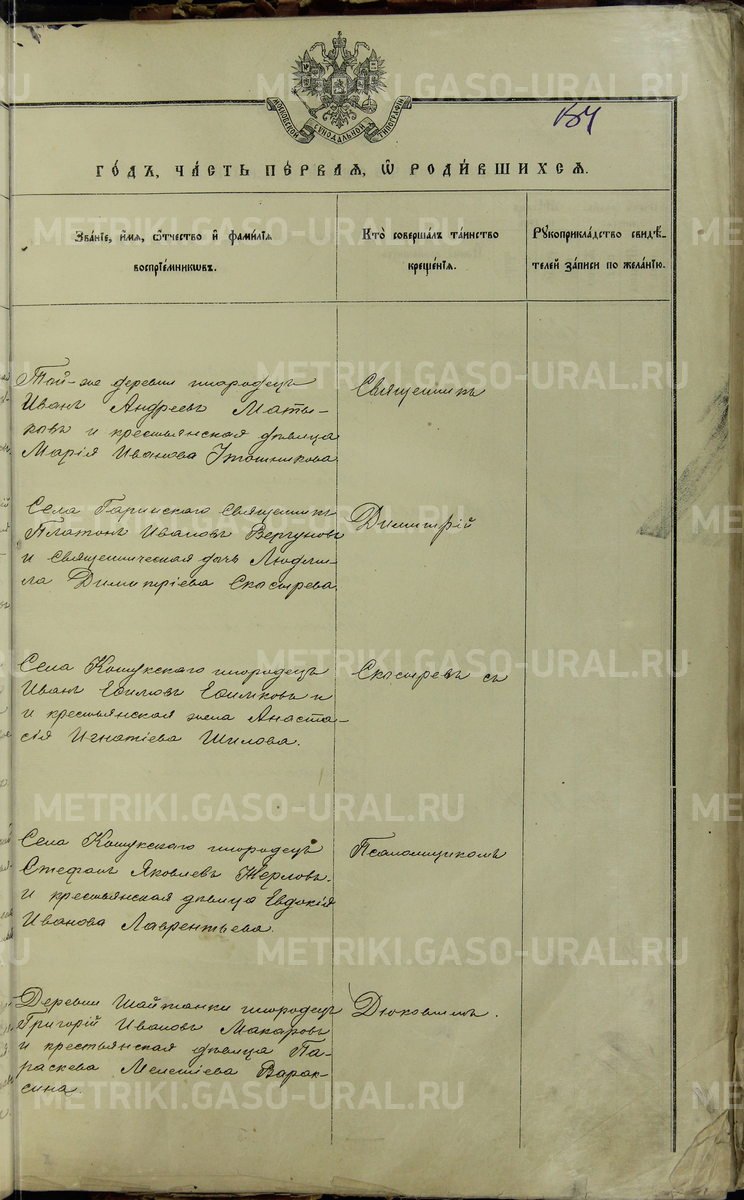 МОСКОВСКОЙ СѴНОДАЛЬНОЙ ТИПОГРАФІИ
184
ГОДЪ, ЧАСТЬ ПЕРВАЯ, Ѡ РОДИВШИХСЯ.
Званіе, имя, ѿчество и фамилія
воспріемникѡвъ.
Кто совершалъ таинство
крещенія.
Рукоприкладство свидѣ-
телей записи по желанію.
Той-же деревни инородецъ
Иванъ Андреевъ Маты-
ковъ и крестьянская дѣвица
Марія Иванова
Священникъ
Села Гаринскаго Священникъ
Платонъ Ивановъ Вергуновъ
и Священническая дочь Людми-
ла Димитріева Скосырева.
Димитрій
Села Кошукскаго инородецъ
Иванъ Ефимовъ
и крестьянская жена Анаста-
сія Игнатіева Шилова.
Скосыревъ съ
Села Кошукскаго инородецъ
Стефанъ Яковлевъ Жерловъ.
и крестьянская дѣвица Евдокія
Иванова Лаврентьева.
Псаломщикомъ
Деревни Шайтанки инородецъ
Григорій Ивановъ Макаровъ
и крестьянская дѣвица Па-
раскева Мелетіева Варак-
сина.
Дюковымъ.
METRIKI.GASO-URAL.RU